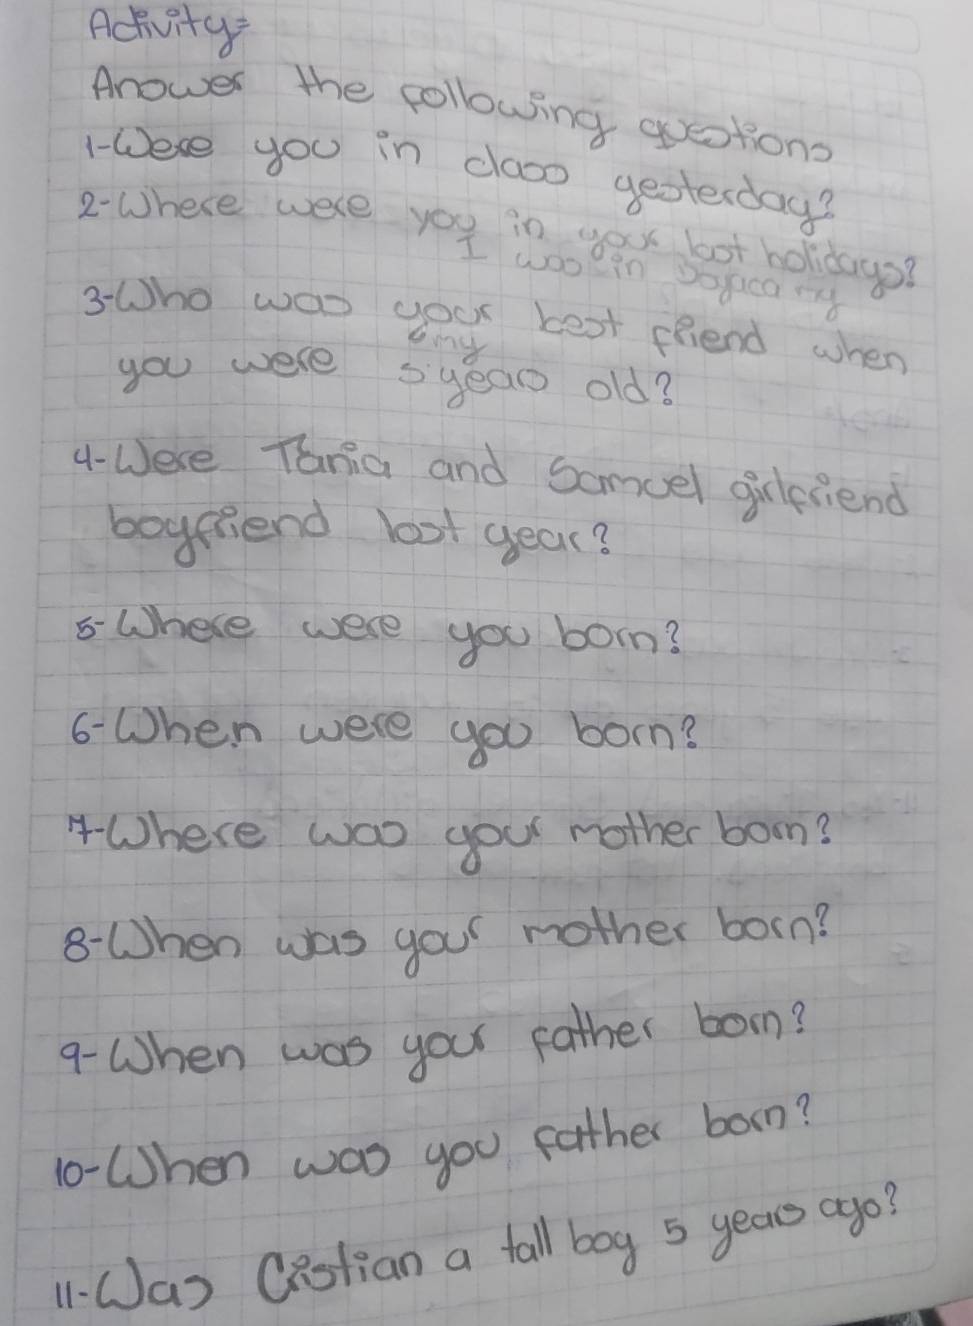 Activity=
Answer the following questions
1-Were you in class yesterday?
2-Where were you in your last holidays?
I was in
3-Who was your best friend when
my
you were 5 years old?
4-Were Tania and Samuel girlfriend
boyfriend last year?
5-Where were you born?
6-When were you born?
7-Where was your mother born?
8-When was your mother born?
9-When was your father born?
10-When was you father born?
11-Was Cristian a tall boy 5 years ago?